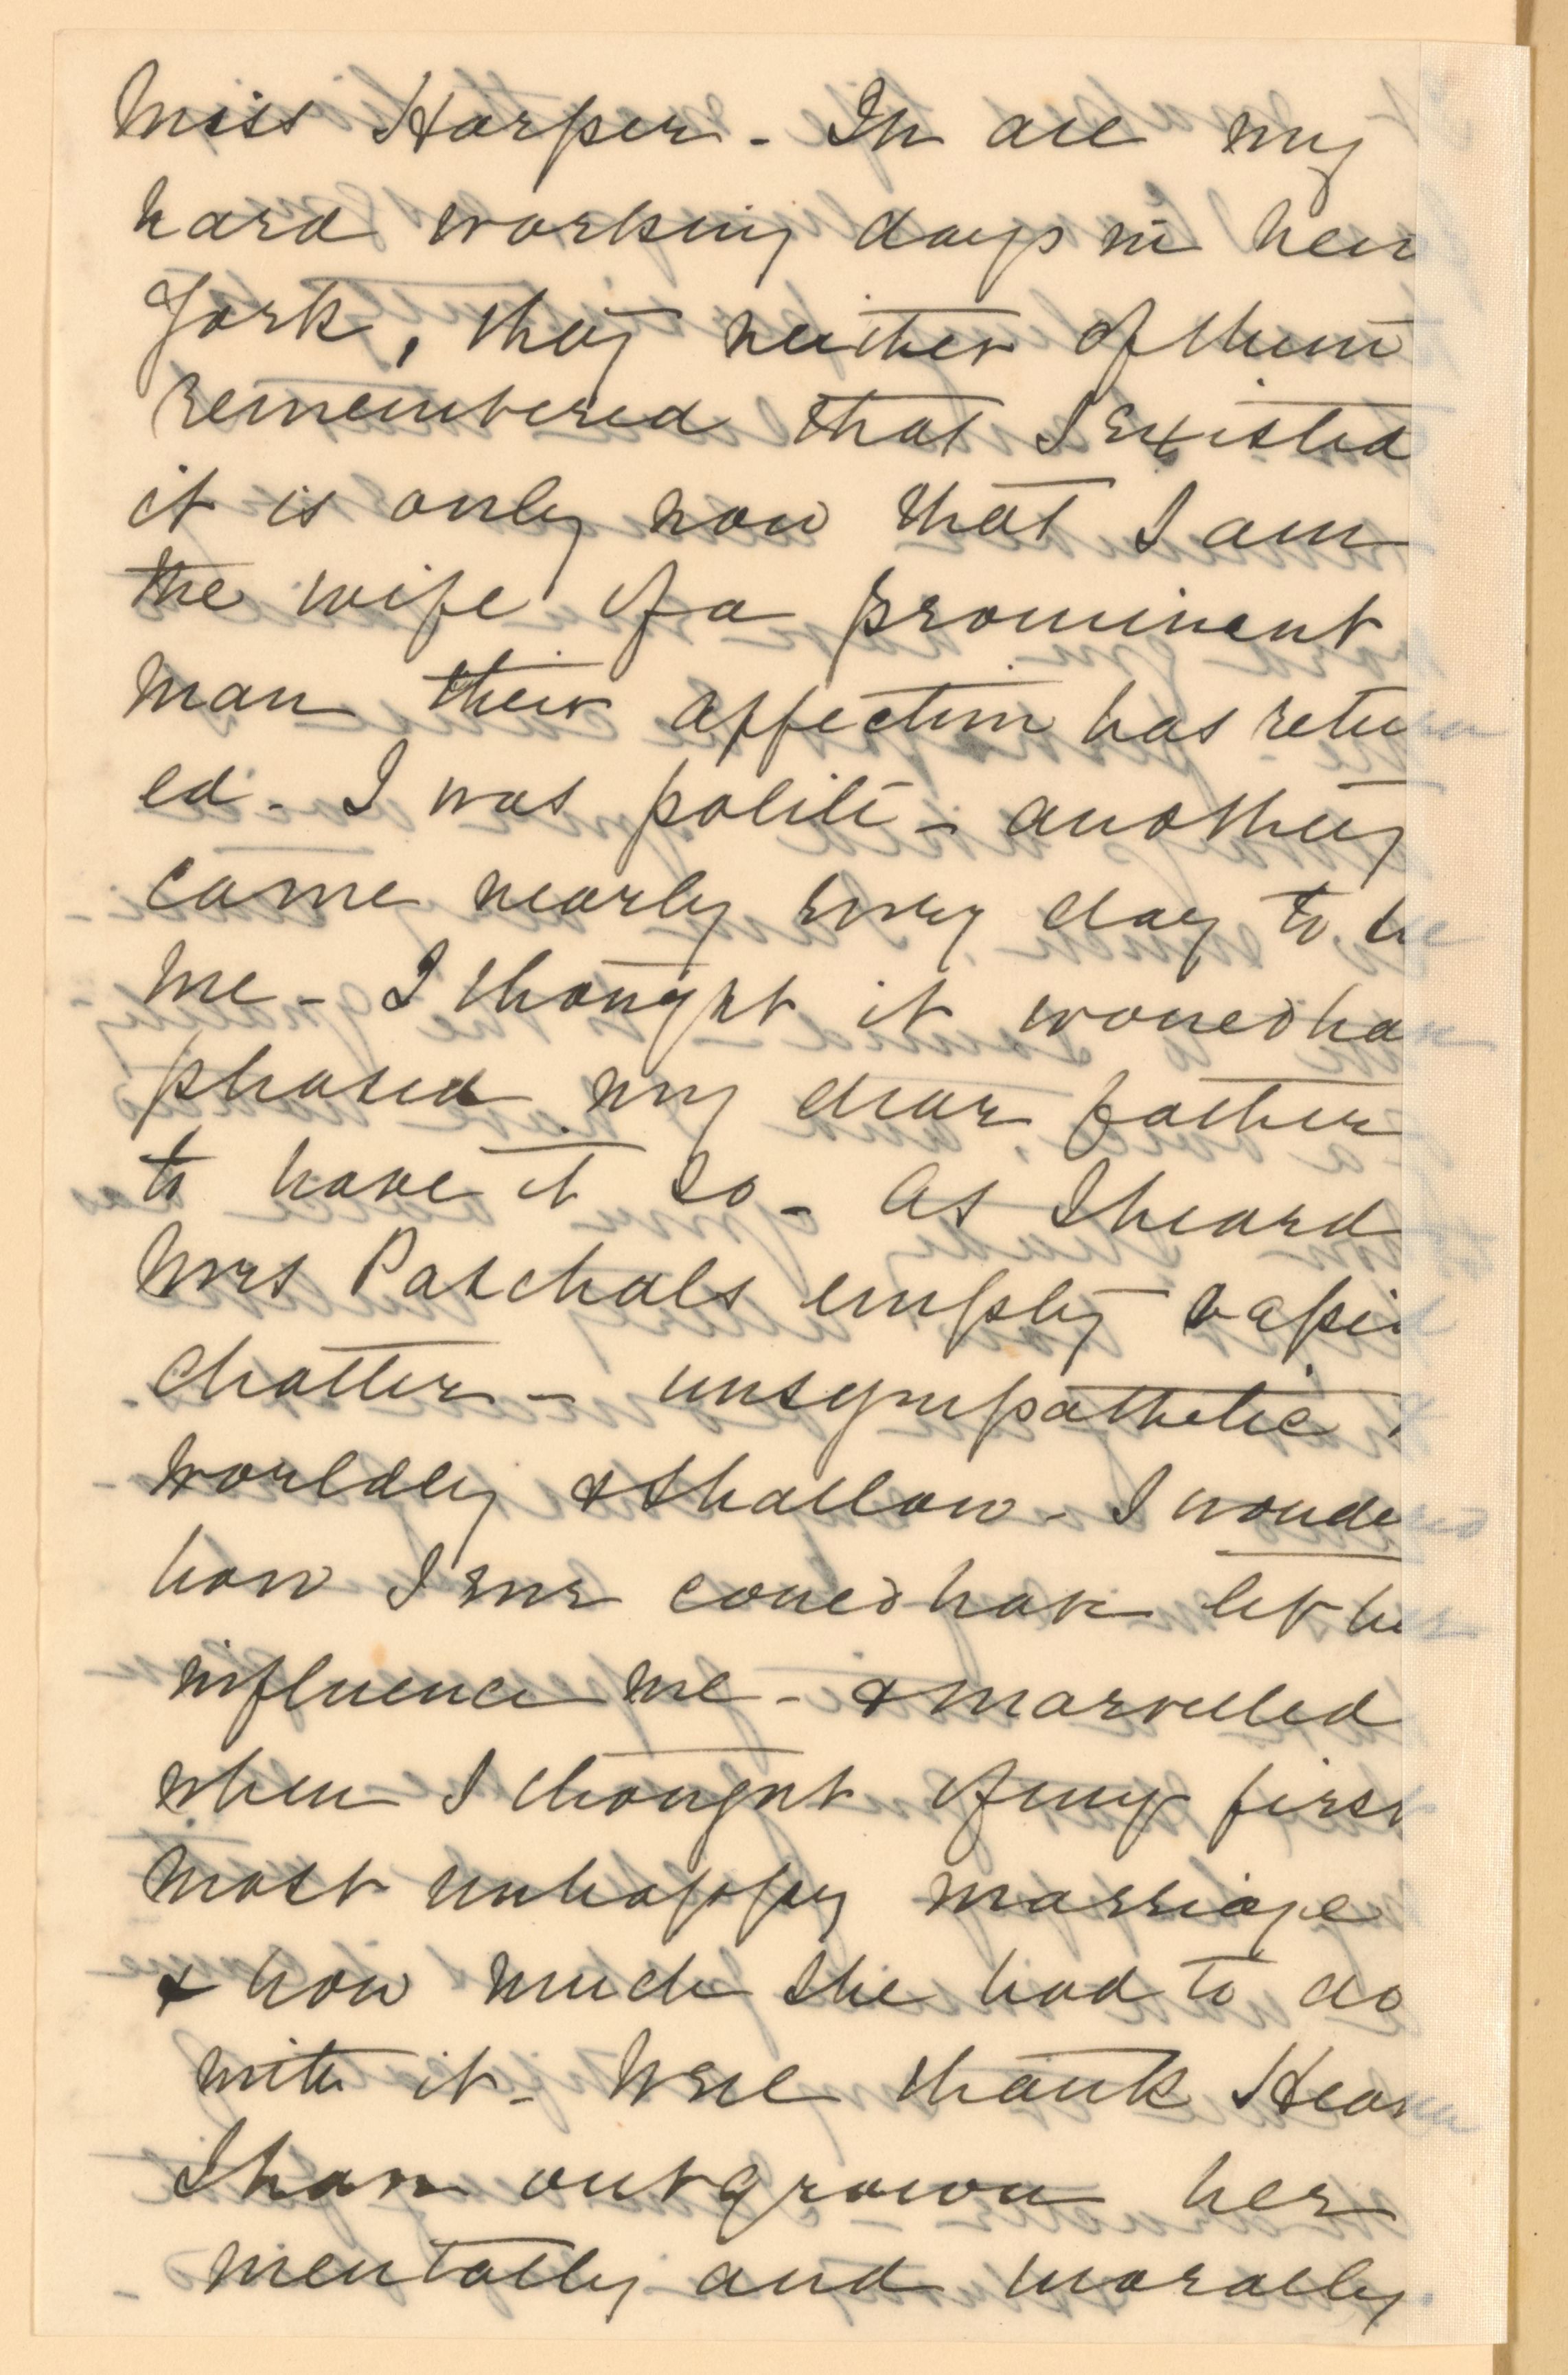 Miss Harper - In all my
hard working days in New
York, they neither of them
remembered that I existed
it is only now that I am
the wife of a prominent
man their affection has return
ed - I was polite - and they
came nearly every day to see
me - I thought it would have
pleased my dear father
to have it so - As I heard
Mrs Paschals empty vapid
chatter - unsympathetic,
worldly & shallow - I wondered
how I ever could have let her
influence me - & marvelled
when I thought of my first
most unhappy marriage
& how much she had to do
with it - Well thank Heaven
I have outgrown her
mentally and morally.